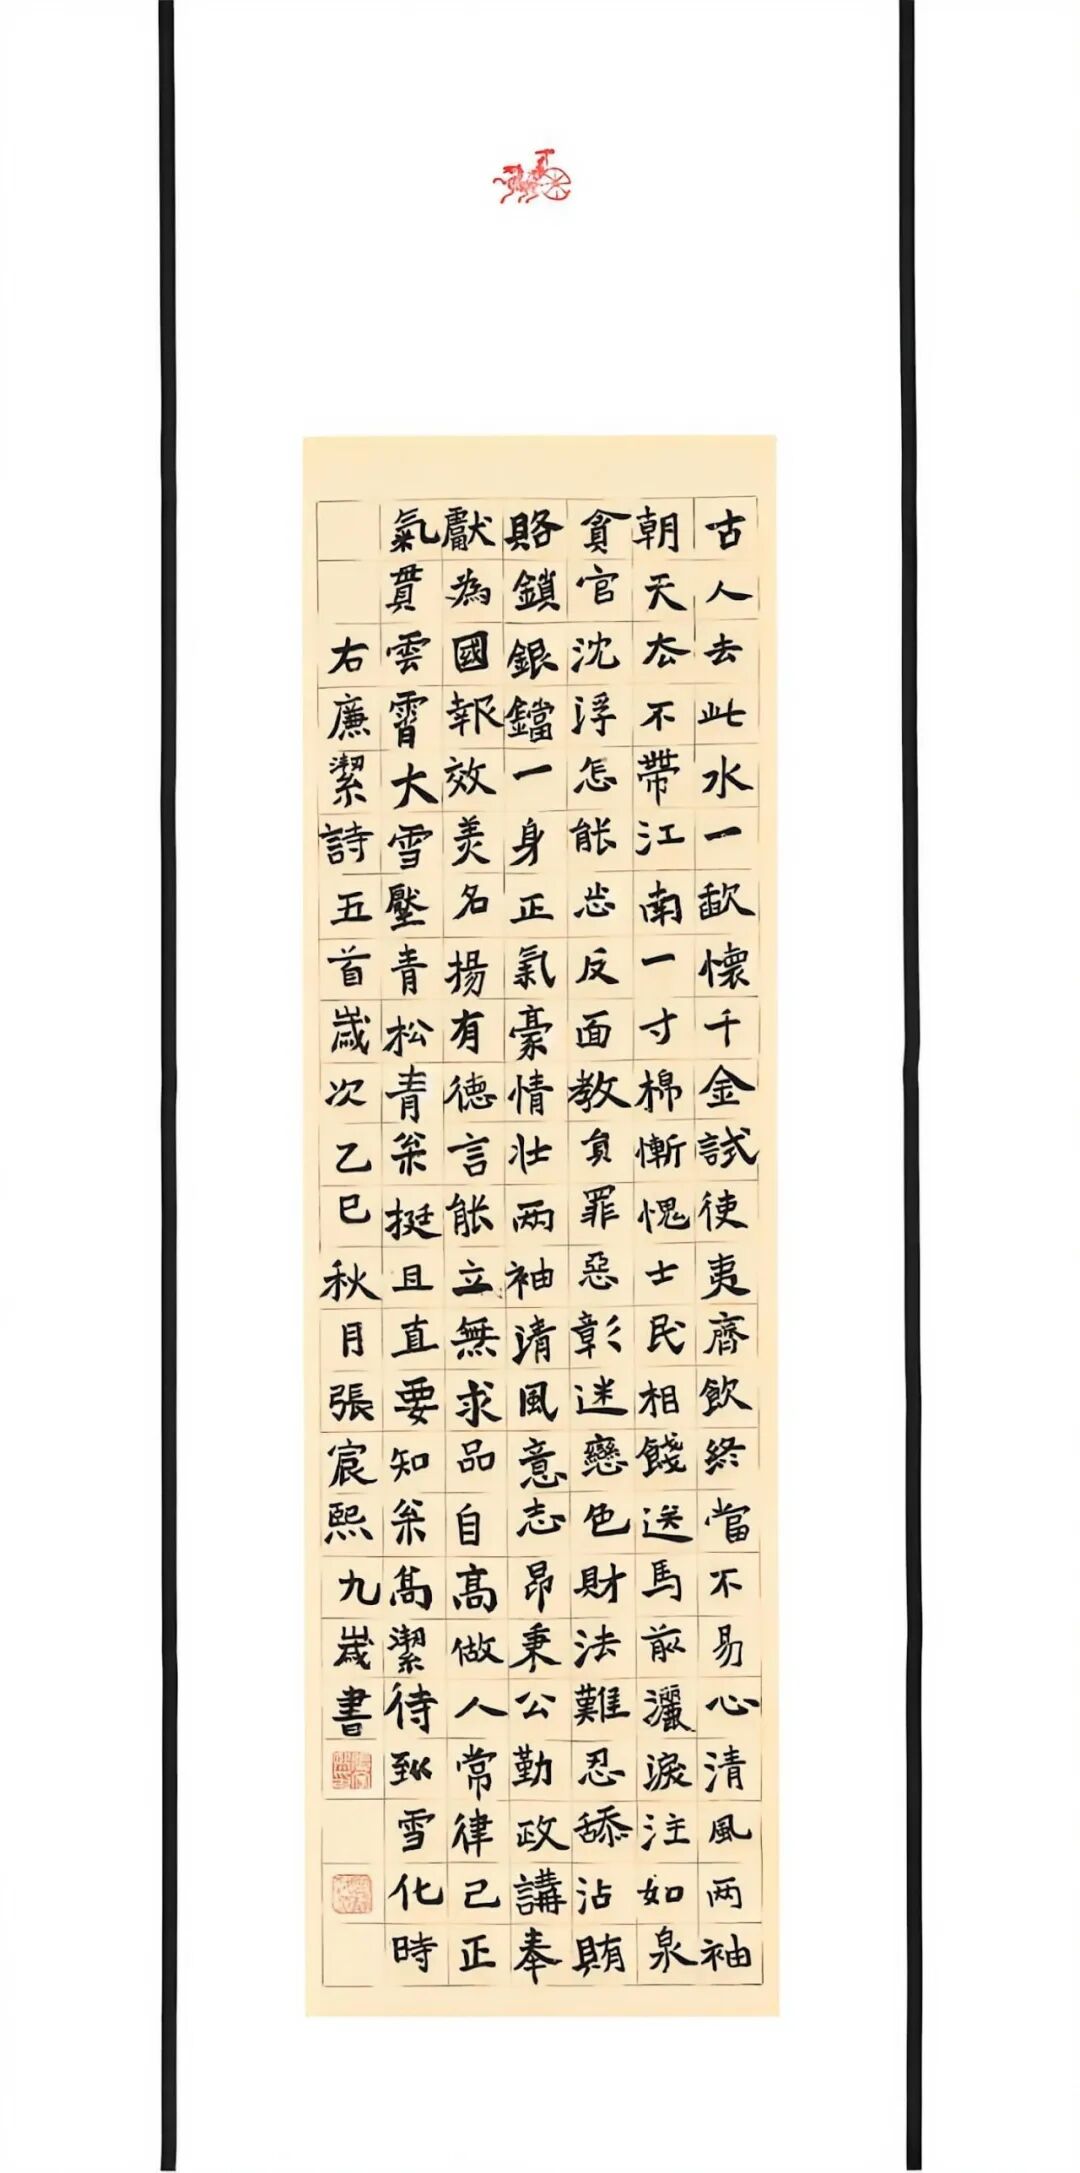 古人去此水一歃懷千金試使夷齊飲終當不易心清風两袖
朝天去不帶江南一寸棉慚愧士民相餞送馬前灑淚注如泉
貪官沈浮怎能忘反面教員罪惡彰迷戀色財法難忍舔沾賄
賂鎖銀鐺一身正氣豪情壯两袖清風意志昂秉公勤政講奉
獻為國報效美名揚有德言能立無求品自高做人常律己正
氣貫雲霄大雪壓青松青枀挺且直要知枀高潔待到雪化時
右廉潔詩五首歲次乙巳秋月張宸熙九歲書